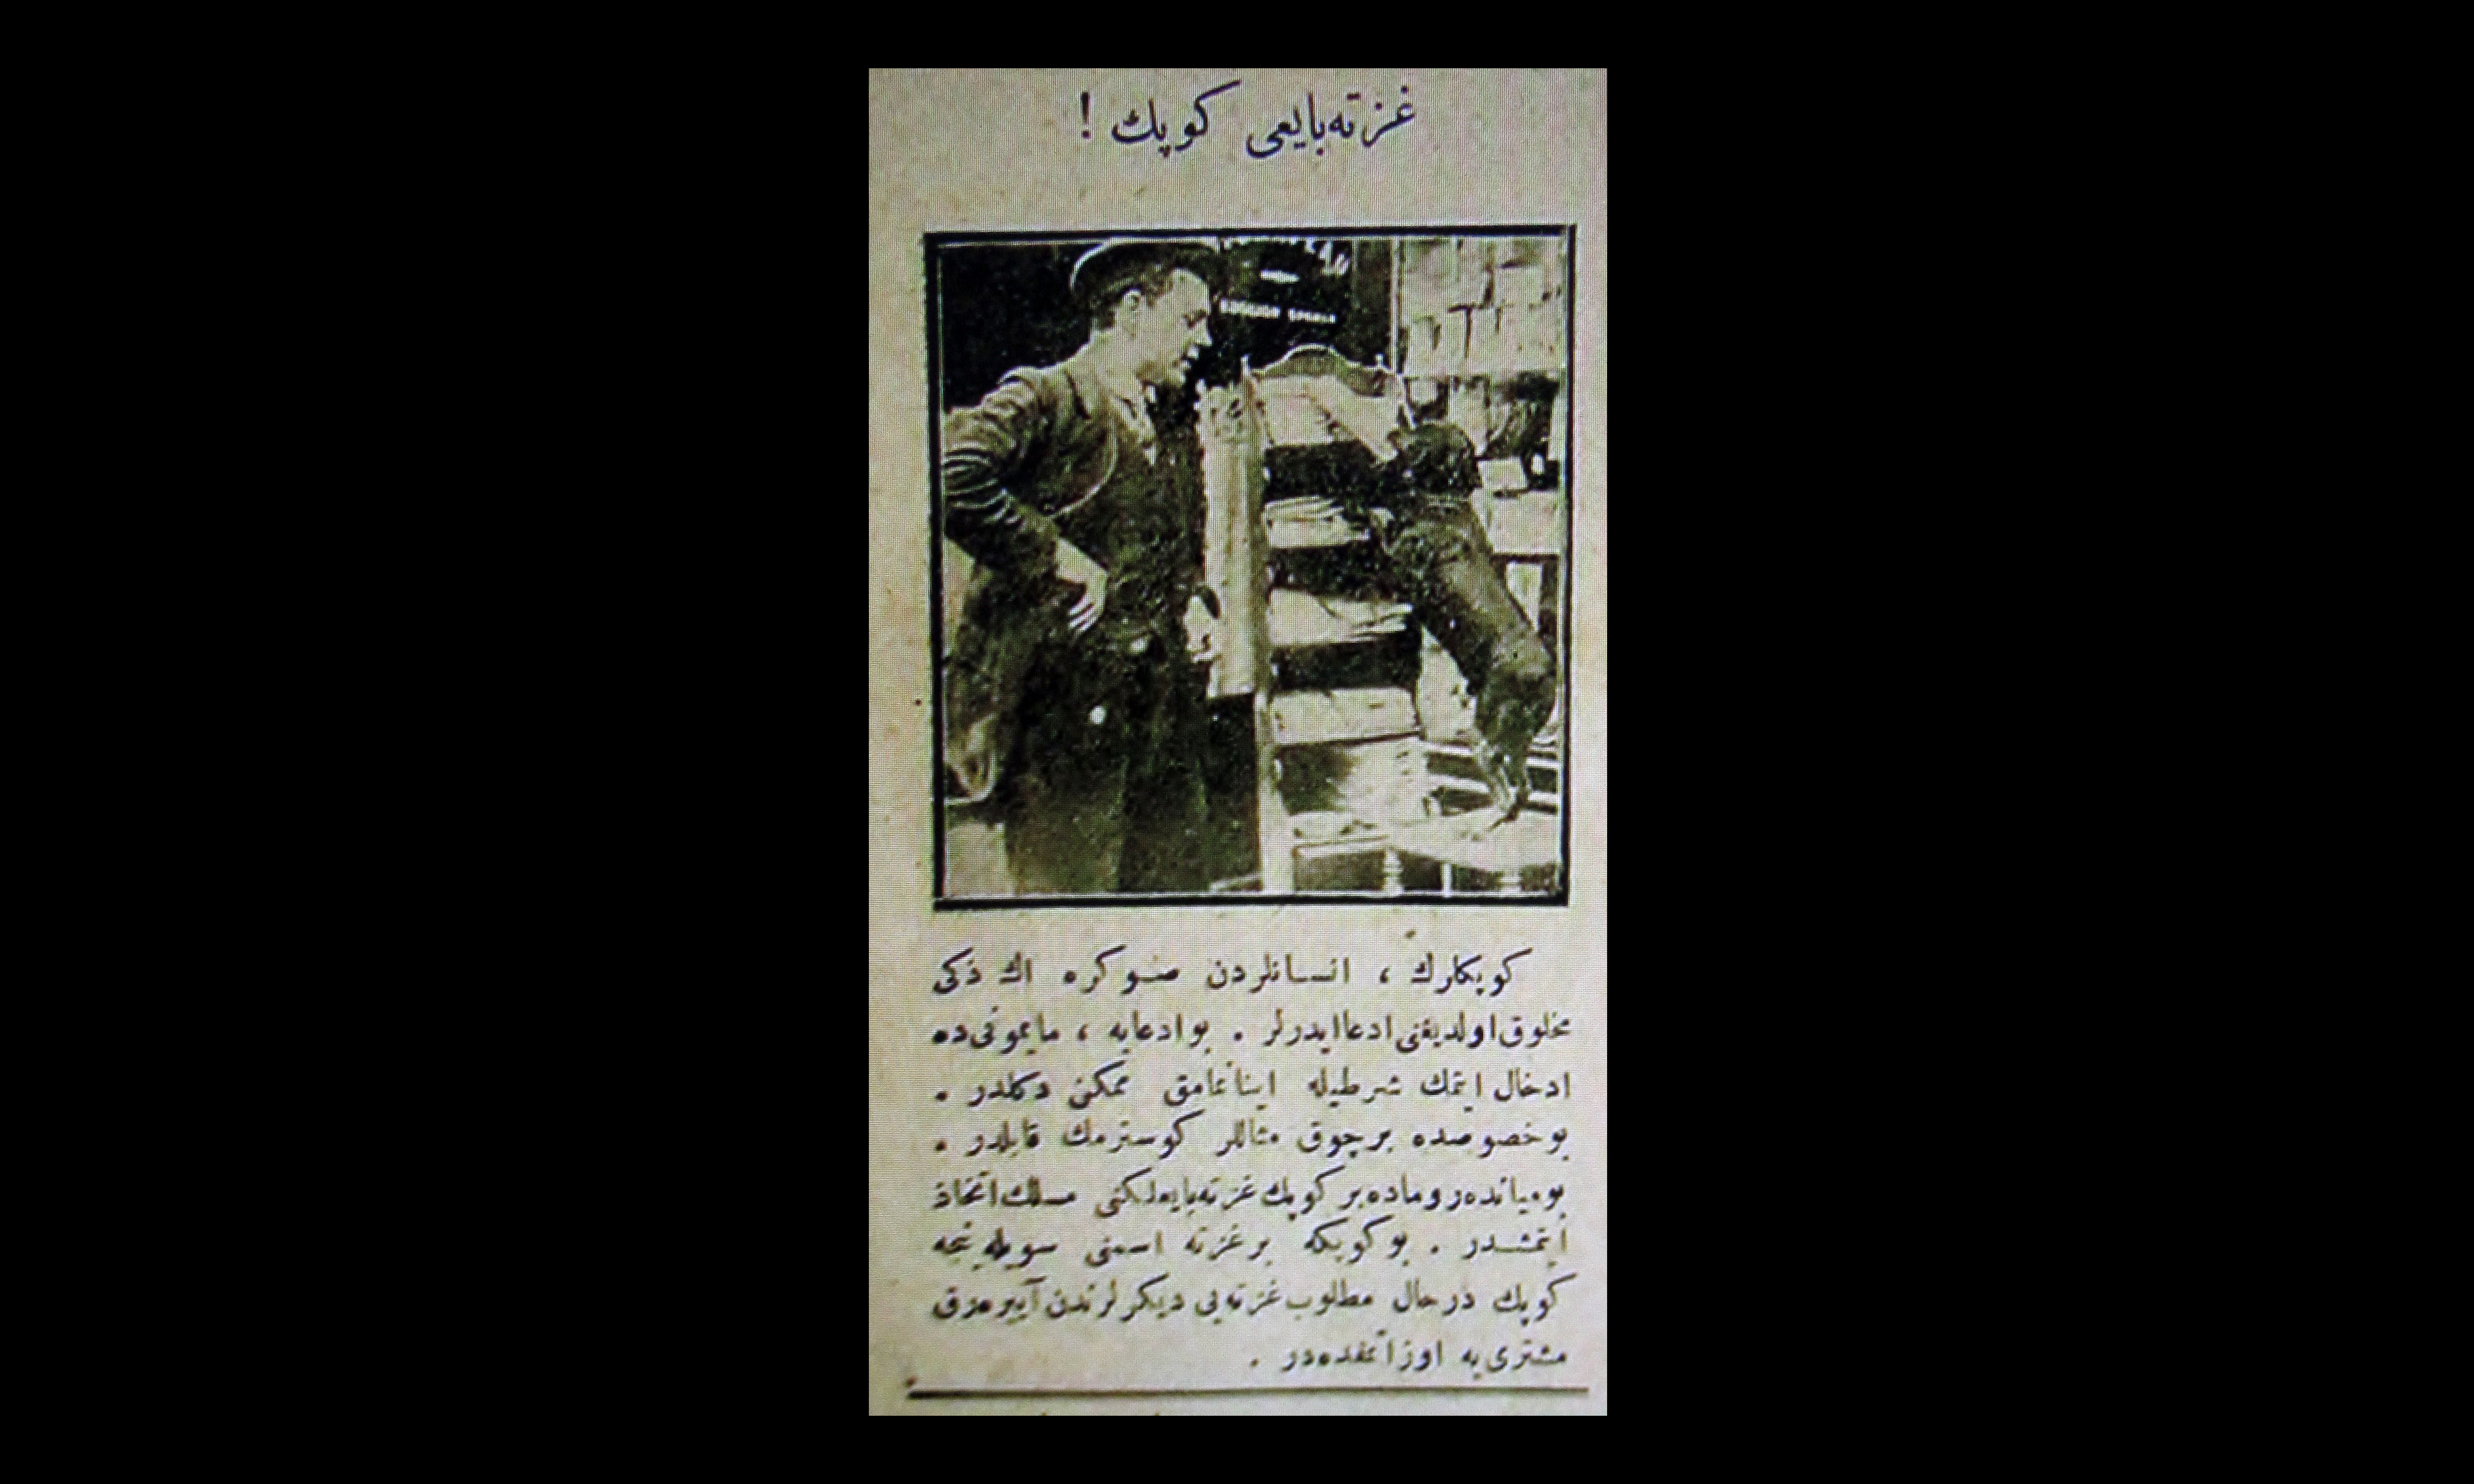 غزته‌بايعى كوپك !
كوپكلرك ، انسانلردن صوكره اك ذكى
مخلوق اولديغنى ادعا ايدرلر . بو ادعايه ، مايمونى ده
ادخال ايتمك شرطيله اينانمامق ممكن دكلدر .
بو خصوصده برچوق مثاللر كوسترمك قابلدر .
بو ميانده روماده بر كوپك غزته‌بايعلكنى مسلك اتخاذ
ايتمشدر . بو كوپكه بر غزته اسمنى سويله‌ينجه
كوپك درحال مطلوب غزته‌يى ديكرلرندن آييره‌رق
مشترى‌يه اوزاتمقده‌در .